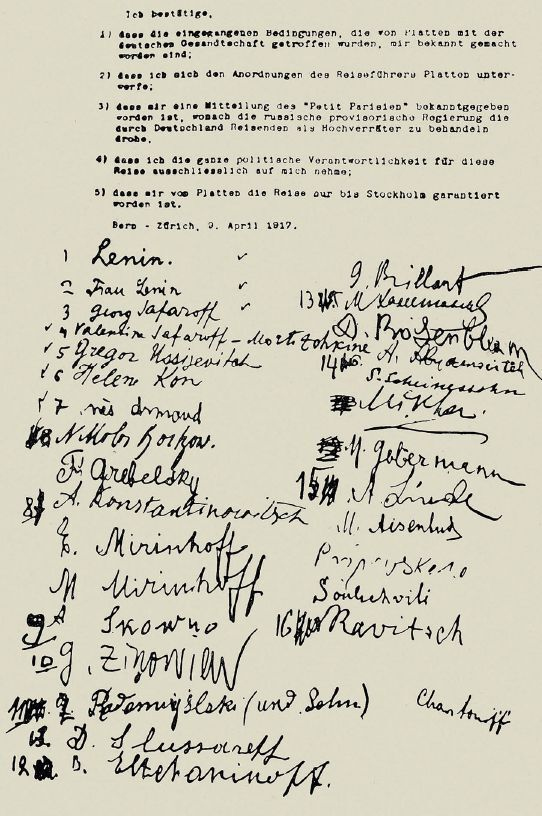 Ich bestätige,
1) dass die eingegangenen Bedingungen, die von Platten mit der
deutschen Gesandtschaft getroffen wurden, mir bekannt gemacht
worden sind;
2) dass ich mich den Anordnungen des Reiseführers Platten unter-
werfe;
3) dass mir eine Mitteilung des "Petit Parisien" bekanntgegeben
worden ist, wonach die russische provisorische Regierung die
durch Deutschland Reisenden als Hochverräter zu behandeln
drohe,
4) dass ich die ganze politische Verantwortlichkeit für diese
Reise ausschliesslich auf mich nehme;
5) dass mir von Platten die Reise nur bis Stockholm garantiert
worden ist.
Bern - Zürich, 9. April 1917.
1 Lenin.
2 Frau Lenin
3 Georg Safaroff
4 Valentina Safaroff - Mortotchkine
5 Gregor Ussijevitch
6 Helene Kon
7 Armand
N. Boykow.
F. Grebelsky
A. Konstantinowitsch
E. Mirinhoff
M Mirinhoff
9 A Skowno
10 G. Zinowiew
Radomyslski (und Sohn)
D. Slussareff
B. Eltchaninoff.
G. Brillant
13 M.
D. Rosenblum
14 A. Abramovitch
S. Scheinessohn
M. Gobermann
15 A Linde
M. Aisenhud
Souliachvili
16 Ravitsch
Charitonoff